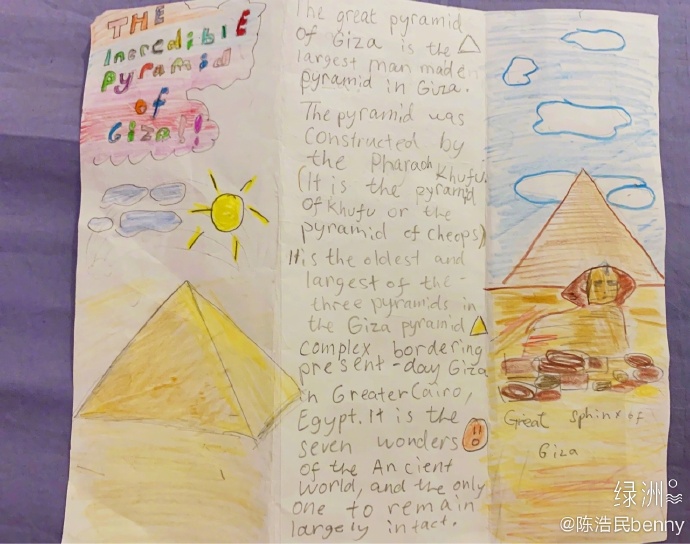 THE
IncredibLE
Pyramid
of
Giza!!
The great pyramid
of Giza is the
largest man maden
pyramid in Giza.
The pyramid was
constructed by
the Pharaoh Khufu.
(It is the pyramid
of Khufu or the
pyramid of Cheops)
It is the oldest and
largest of the-
three pyramids in
the Giza pyramid
complex bordering
present-day Giza
in Greater Cairo,
Egypt. It is the
seven wonders
of the Ancient
World, and the only
one to remain
largely intact.
Great sphinx of
Giza
绿洲
@陈浩民benny